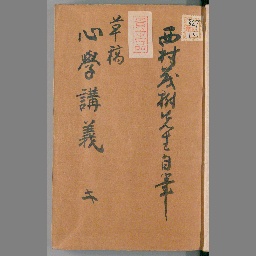 西村茂樹先生自筆
草稿
心學講義